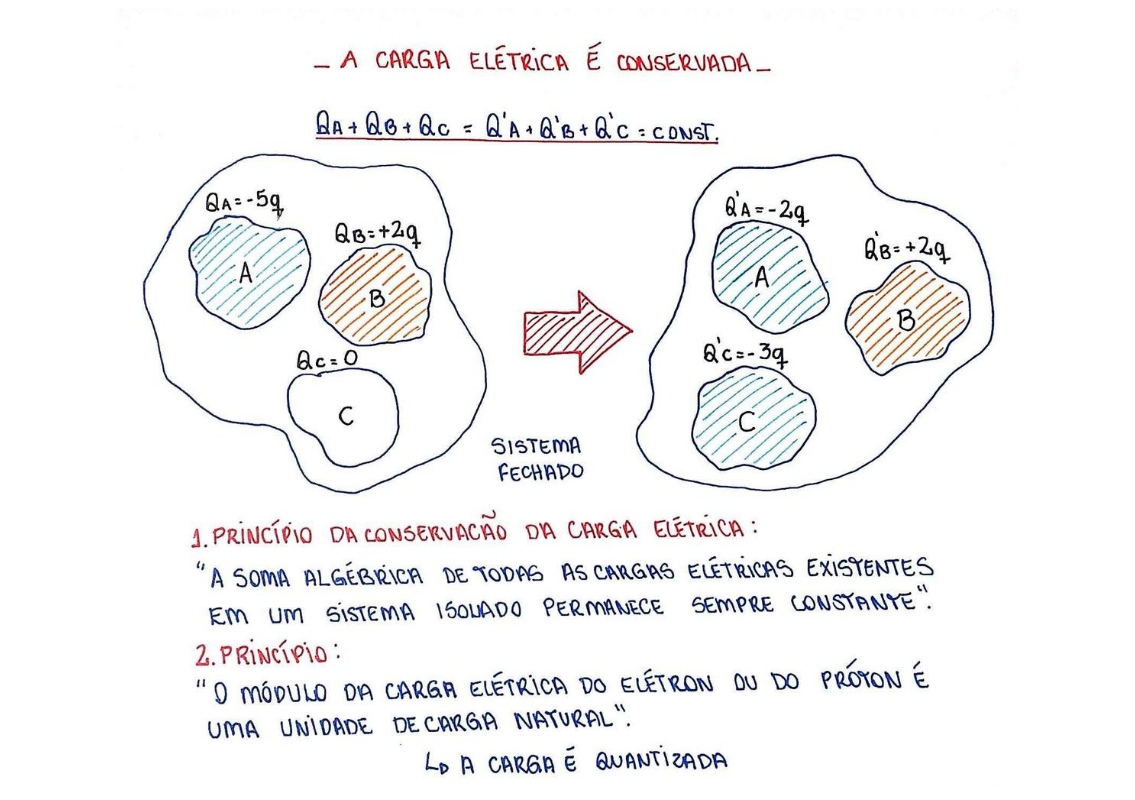 _ A CARGA ELÉTRICA É CONSERVADA _
QA + QB + QC = Q'A + Q'B + Q'C = CONST.
QA = -5q
QB = +2q
A
B
QC = 0
C
Q'A = -2q
Q'B = +2q
A
B
Q'C = -3q
C
SISTEMA
FECHADO
1. PRINCÍPIO DA CONSERVACÃO DA CARGA ELÉTRICA:
"A SOMA ALGÉBRICA DE TODAS AS CARGAS ELÉTRICAS EXISTENTES
EM UM SISTEMA ISOLADO PERMANECE SEMPRE CONSTANTE".
2. PRINCÍPIO:
"O MÓDULO DA CARGA ELÉTRICA DO ELÉTRON OU DO PRÓTON É
UMA UNIDADE DE CARGA NATURAL".
↳ A CARGA É QUANTIZADA